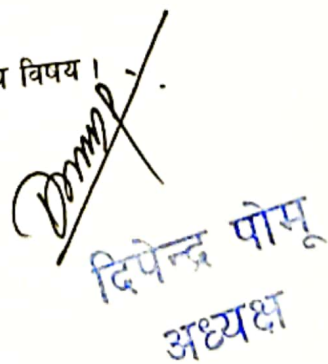 विषय ।
दिपेन्द्र पोमू
अध्यक्ष